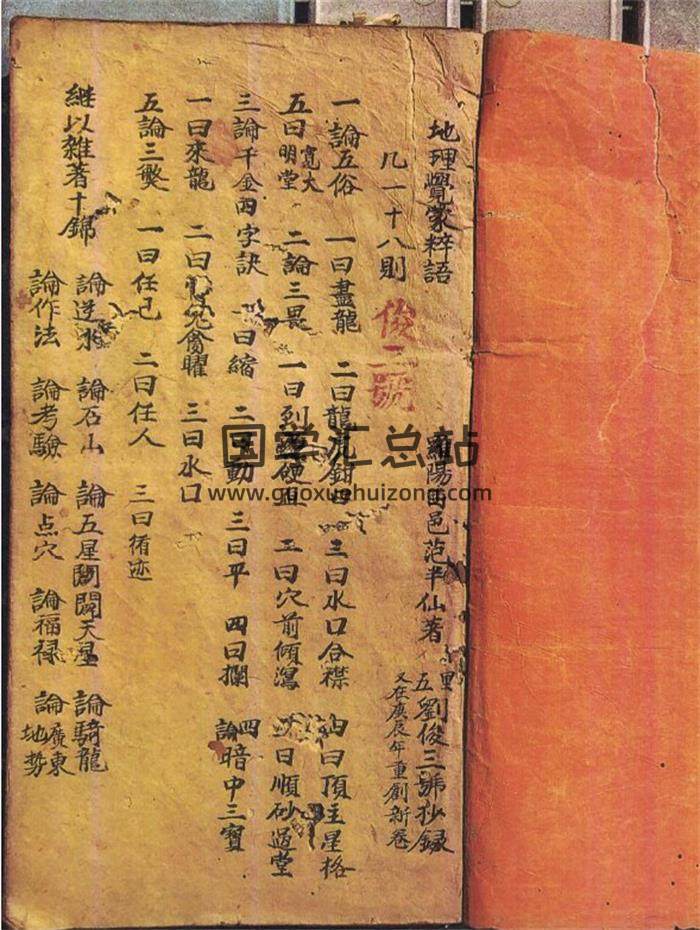 地理覺蒙粹語
羅陽西邑范半仙著
五里劉俊三號抄録
又在庚辰年重創新卷
凡一十八則
俊三號
一論五俗 一曰盡龍 二曰龍虎 三曰水口合襟 四曰頂主星格
五曰明堂寬大 二論三畏 一曰到 硬直 二曰穴前傾瀉 三曰順砂過堂
三論千金四字訣 一曰縮 二曰動 三曰平 四曰攔 四論暗中三寶
一曰來龍 二曰 禽曜 三曰水口
五論三獘 一曰任己 二曰任人 三曰循迹
継以雜著十錦
論逆水 論石山 論五星 闘天星 論騎龍
論作法 論考驗 論点穴 論福禄 論廣東地勢
国学汇总站
www.guoxuehuizong.com